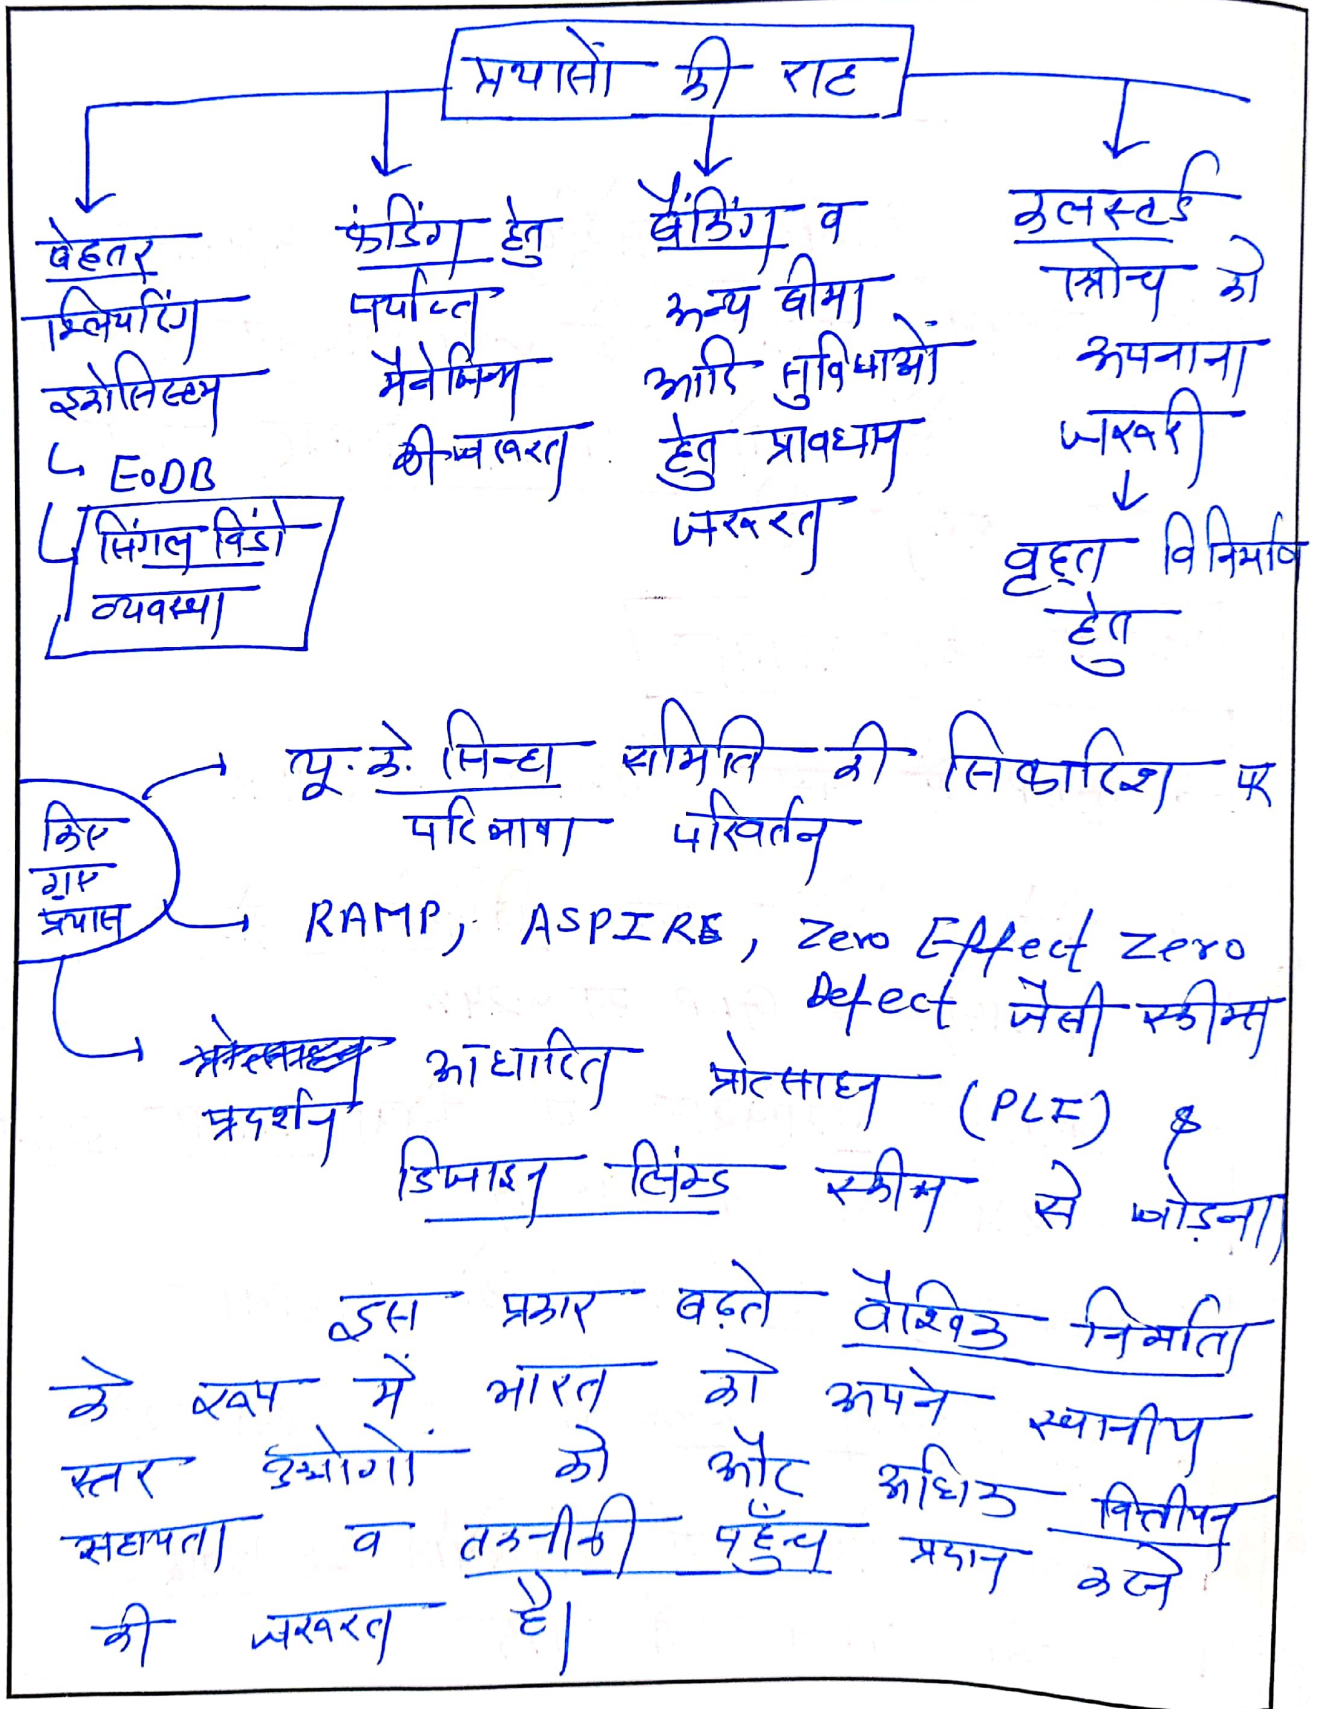 प्रयासों की राह
बेहतर
क्लियरिंग
इकोसिस्टम
↳ EoDB
↳ सिंगल विंडो
व्यवस्था
फंडिंग हेतु
पर्याप्त
मैकेनिज्म
की जरूरत
बैंकिंग व
अन्य बीमा
आदि सुविधाओं
हेतु प्रावधान
जरूरत
कलस्टर्ड
को
अपनाना
जरूरी
↓
वृहत विनिर्माण
हेतु
किए
गए
प्रयास
→ यू. के. सिन्हा समिति की सिफारिश पर
परिभाषा परिवर्तन
→ RAMP, ASPIRE, Zero Effect Zero
Defect जैसी स्कीम्स
→ आधारित प्रोत्साहन (PLI) &
प्रदर्शन
डिजाइन लिंक्ड स्कीम से जोड़ना
इस प्रकार बढ़ते वैश्विक निर्माता
के रूप में भारत को अपने स्थानीय
स्तर उद्योगों को और अधिक वित्तीयन
सहायता व तकनीकी पहुँच प्रदान करने
की जरूरत है।